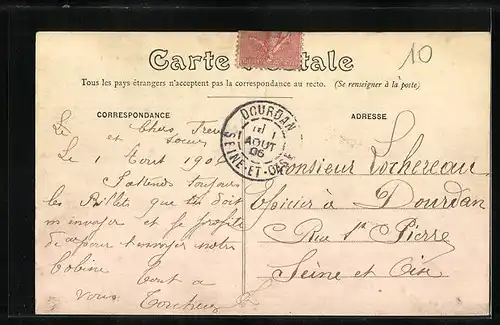 Carte Postale
10
Tous les pays étrangers n'acceptent pas la correspondance au recto. (Se renseigner à la poste)
CORRESPONDANCE
ADRESSE
DOURDAN
1
AOUT
06
SEINE-ET-OISE
Le
Chers
et soeur
Le 1 Aout 1906
J'attends toujours
les Billets que tu doit
m'envoyer et je profite
pour t'envoyer notre
bobine
Tout a
vous
Monsieur Lochereau
Epicier à Dourdan
Rue St Pierre
Seine et Oise